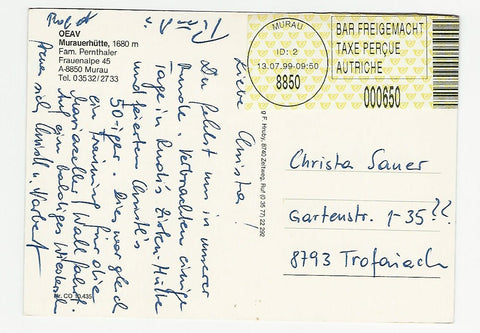 Prost
OEAV
Murauerhütte, 1680 m
Fam. Pernthaler
Frauenalpe 45
A-8850 Murau
Tel. 0 35 32/2733
MURAU
ID: 2
13.07.99-09:50
8850
BAR FREIGEMACHT
TAXE PERÇUE
AUTRICHE
000650
Liebe Christa!
Du fehlst uns in unserer
Runde. Verbrachten einige
Tage in Rudi's Zirben-Hütte
und feierten Christl's
50-iger. Dies war gleich
ein Training für die
Mariazeller Wallfahrt.
Auf ein baldiges Wiedersehen
freuen sich Christl u. Norbert
Nr. CO 10.435
g F. Hruby, 8740 Zeltweg, Ruf (0 35 77) 22 292
Christa Sauer
Gartenstr. 1-35??
8793 Trofaiach